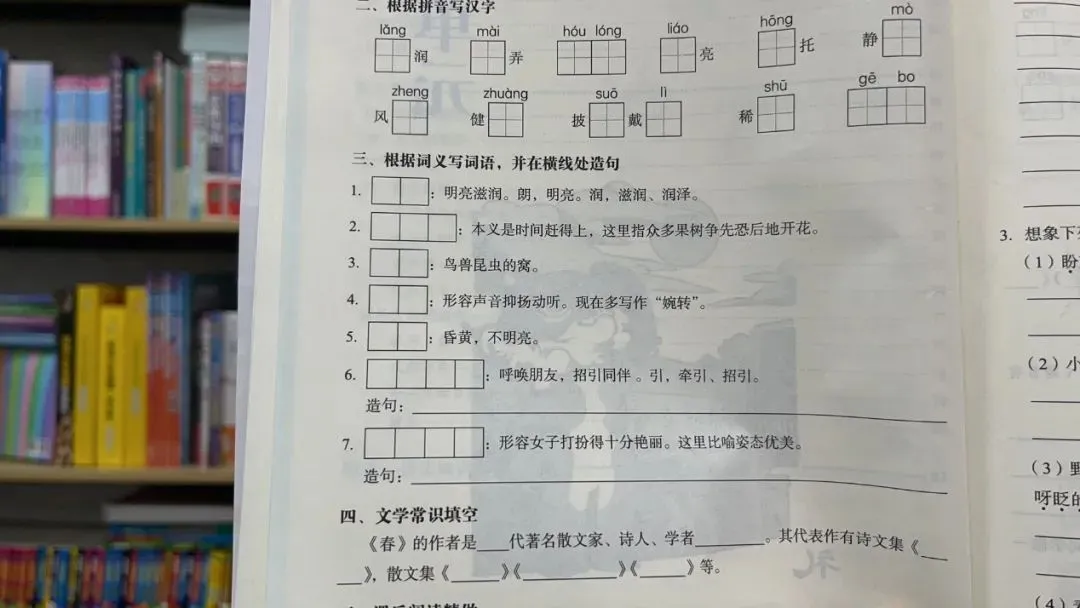 二、根据拼音写汉字
lǎng mài hóu lóng liáo hōng mò
润 弄 亮 托 静
zheng zhuàng suō lì shū gē bo
风 健 披 戴 稀
三、根据词义写词语，并在横线处造句
1. ：明亮滋润。朗，明亮。润，滋润、润泽。
2. ：本义是时间赶得上，这里指众多果树争先恐后地开花。
3. ：鸟兽昆虫的窝。
4. ：形容声音抑扬动听。现在多写作“婉转”。
5. ：昏黄，不明亮。
6. ：呼唤朋友，招引同伴。引，牵引、招引。
造句：
7. ：形容女子打扮得十分艳丽。这里比喻姿态优美。
造句：
四、文学常识填空
《春》的作者是____代著名散文家、诗人、学者________。其代表作有诗文集《___
___》，散文集《______》《____________》《______》等。
3. 想象下
（1）盼
（2）小
（3）野
呀眨的
（4）